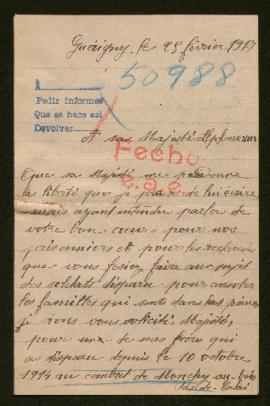 Guérigny, le 25 février 1917
50988
Pedir informes
Que se hace así
Devolver
A sa Majesté Alphonse XIII
Fecho
Que sa Majesté me pardonne
la liberté que je prend de lui écrire
mais ayant entendu parler de
votre bon cœur pour nos
prisonniers et pour les recherches
que vous fesiez faire au sujet
des soldats disparu pour consoler
les familles qui sont dans la peine
je viens vous solicité Majesté,
pour un de mes frère qui
a disparu depuis le 10 octobre
1914 au combat de Monchy-au-Bois
Pas-de-Calais